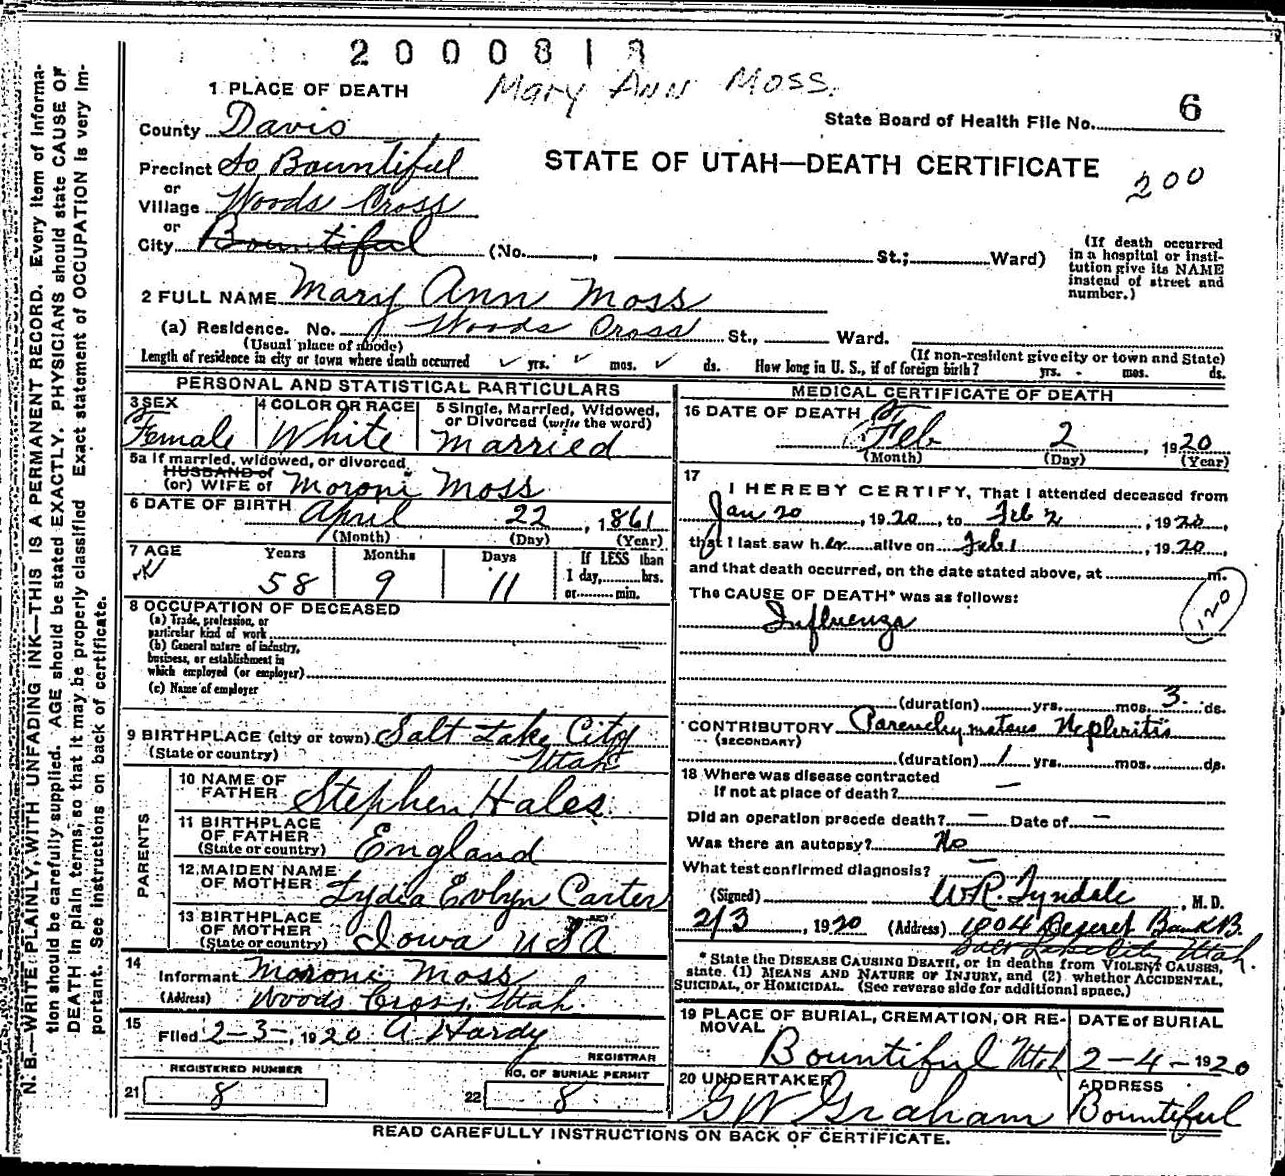 2000818
Mary Ann Moss.
1 PLACE OF DEATH
State Board of Health File No. 6
County Davis
STATE OF UTAH—DEATH CERTIFICATE
200
Precinct So Bountiful
or
Village Woods Cross
or
City Bountiful (No. , St.; Ward)
(If death occurred
in a hospital or insti-
tution give its NAME
instead of street and
number.)
2 FULL NAME Mary Ann Moss
(a) Residence. No. Woods Cross St., Ward.
(Usual place of abode) (If non-resident give city or town and State)
Length of residence in city or town where death occurred yrs. mos. ds. How long in U. S., if of foreign birth? yrs. mos. ds.
PERSONAL AND STATISTICAL PARTICULARS
3 SEX Female
4 COLOR OR RACE White
5 Single, Married, Widowed,
or Divorced (write the word)
Married
5a If married, widowed, or divorced
HUSBAND of
(or) WIFE of Moroni Moss
6 DATE OF BIRTH April 22, 1861
(Month) (Day) (Year)
7 AGE Years Months Days If LESS than
58 9 11 1 day, hrs.
or min.
8 OCCUPATION OF DECEASED
(a) Trade, profession, or
particular kind of work
(b) General nature of industry,
business, or establishment in
which employed (or employer)
(c) Name of employer
9 BIRTHPLACE (city or town) Salt Lake City
(State or country) Utah
PARENTS
10 NAME OF
FATHER Stephen Hales
11 BIRTHPLACE
OF FATHER
(State or country) England
12 MAIDEN NAME
OF MOTHER Lydia Evlyn Carter
13 BIRTHPLACE
OF MOTHER
(State or country) Iowa USA
14
Informant Moroni Moss
(Address) Woods Cross, Utah.
15
Filed 2-3-, 1920 A. Hardy
REGISTRAR
REGISTERED NUMBER
21 8
NO. OF BURIAL PERMIT
22 8
MEDICAL CERTIFICATE OF DEATH
16 DATE OF DEATH
Feb 2 1920
(Month) (Day) (Year)
17
I HEREBY CERTIFY, That I attended deceased from
Jan 20, 1920, to Feb 2, 1920,
that I last saw her alive on Feb 1, 1920,
and that death occurred, on the date stated above, at m.
The CAUSE OF DEATH* was as follows:
120
Influenza
(duration) yrs. mos. 3 ds.
CONTRIBUTORY Parenchymatous Nephritis
(SECONDARY)
(duration) 1 yrs. mos. ds.
18 Where was disease contracted
If not at place of death? —
Did an operation precede death? — Date of —
Was there an autopsy? No
What test confirmed diagnosis? —
(Signed) W.R. Tyndale, M. D.
2/3, 1920 (Address) 1004 Deseret Bank B.
Salt Lake City Utah.
* State the DISEASE CAUSING DEATH, or in deaths from VIOLENT CAUSES,
state. (1) MEANS AND NATURE OF INJURY, and (2) whether ACCIDENTAL,
SUICIDAL, or HOMICIDAL. (See reverse side for additional space.)
19 PLACE OF BURIAL, CREMATION, OR RE-
MOVAL
Bountiful Utah
DATE of BURIAL
2-4-1920
20 UNDERTAKER
G W Graham
ADDRESS
Bountiful
READ CAREFULLY INSTRUCTIONS ON BACK OF CERTIFICATE.
N. B.—WRITE PLAINLY, WITH UNFADING INK—THIS IS A PERMANENT RECORD. Every item of Informa-
tion should be carefully supplied. AGE should be stated EXACTLY. PHYSICIANS should state CAUSE OF
DEATH in plain terms, so that it may be properly classified Exact statement of OCCUPATION is very Im-
portant. See instructions on back of certificate.